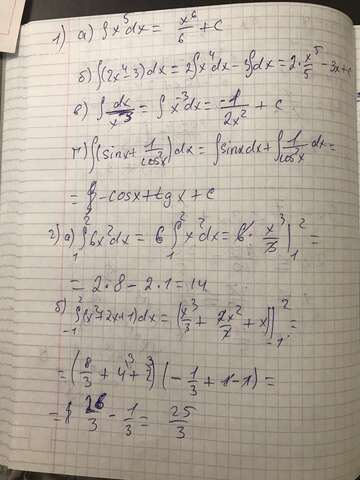 1) а) ∫x⁵dx = x⁶/6 + C
б) ∫(2x⁴-3)dx = 2∫x⁴dx - 3∫dx = 2·x⁵/5 - 3x + C
в) ∫dx/x³ = ∫x⁻³dx = -1/2x² + C
г) ∫(sinx + 1/cos²x)dx = ∫sinxdx + ∫1/cos²x dx =
= -cosx + tgx + C
2) а) ∫₁²6x²dx = 6∫₁²x²dx = 6·x³/3|₁² =
= 2·8 - 2·1 = 14
б) ∫₋₁²(x²+2x+1)dx = (x³/3 + 2x²/2 + x)|₋₁² =
= (8/3 + 4 + 2) (-1/3 + 1 - 1) =
= 26/3 - 1/3 = 25/3